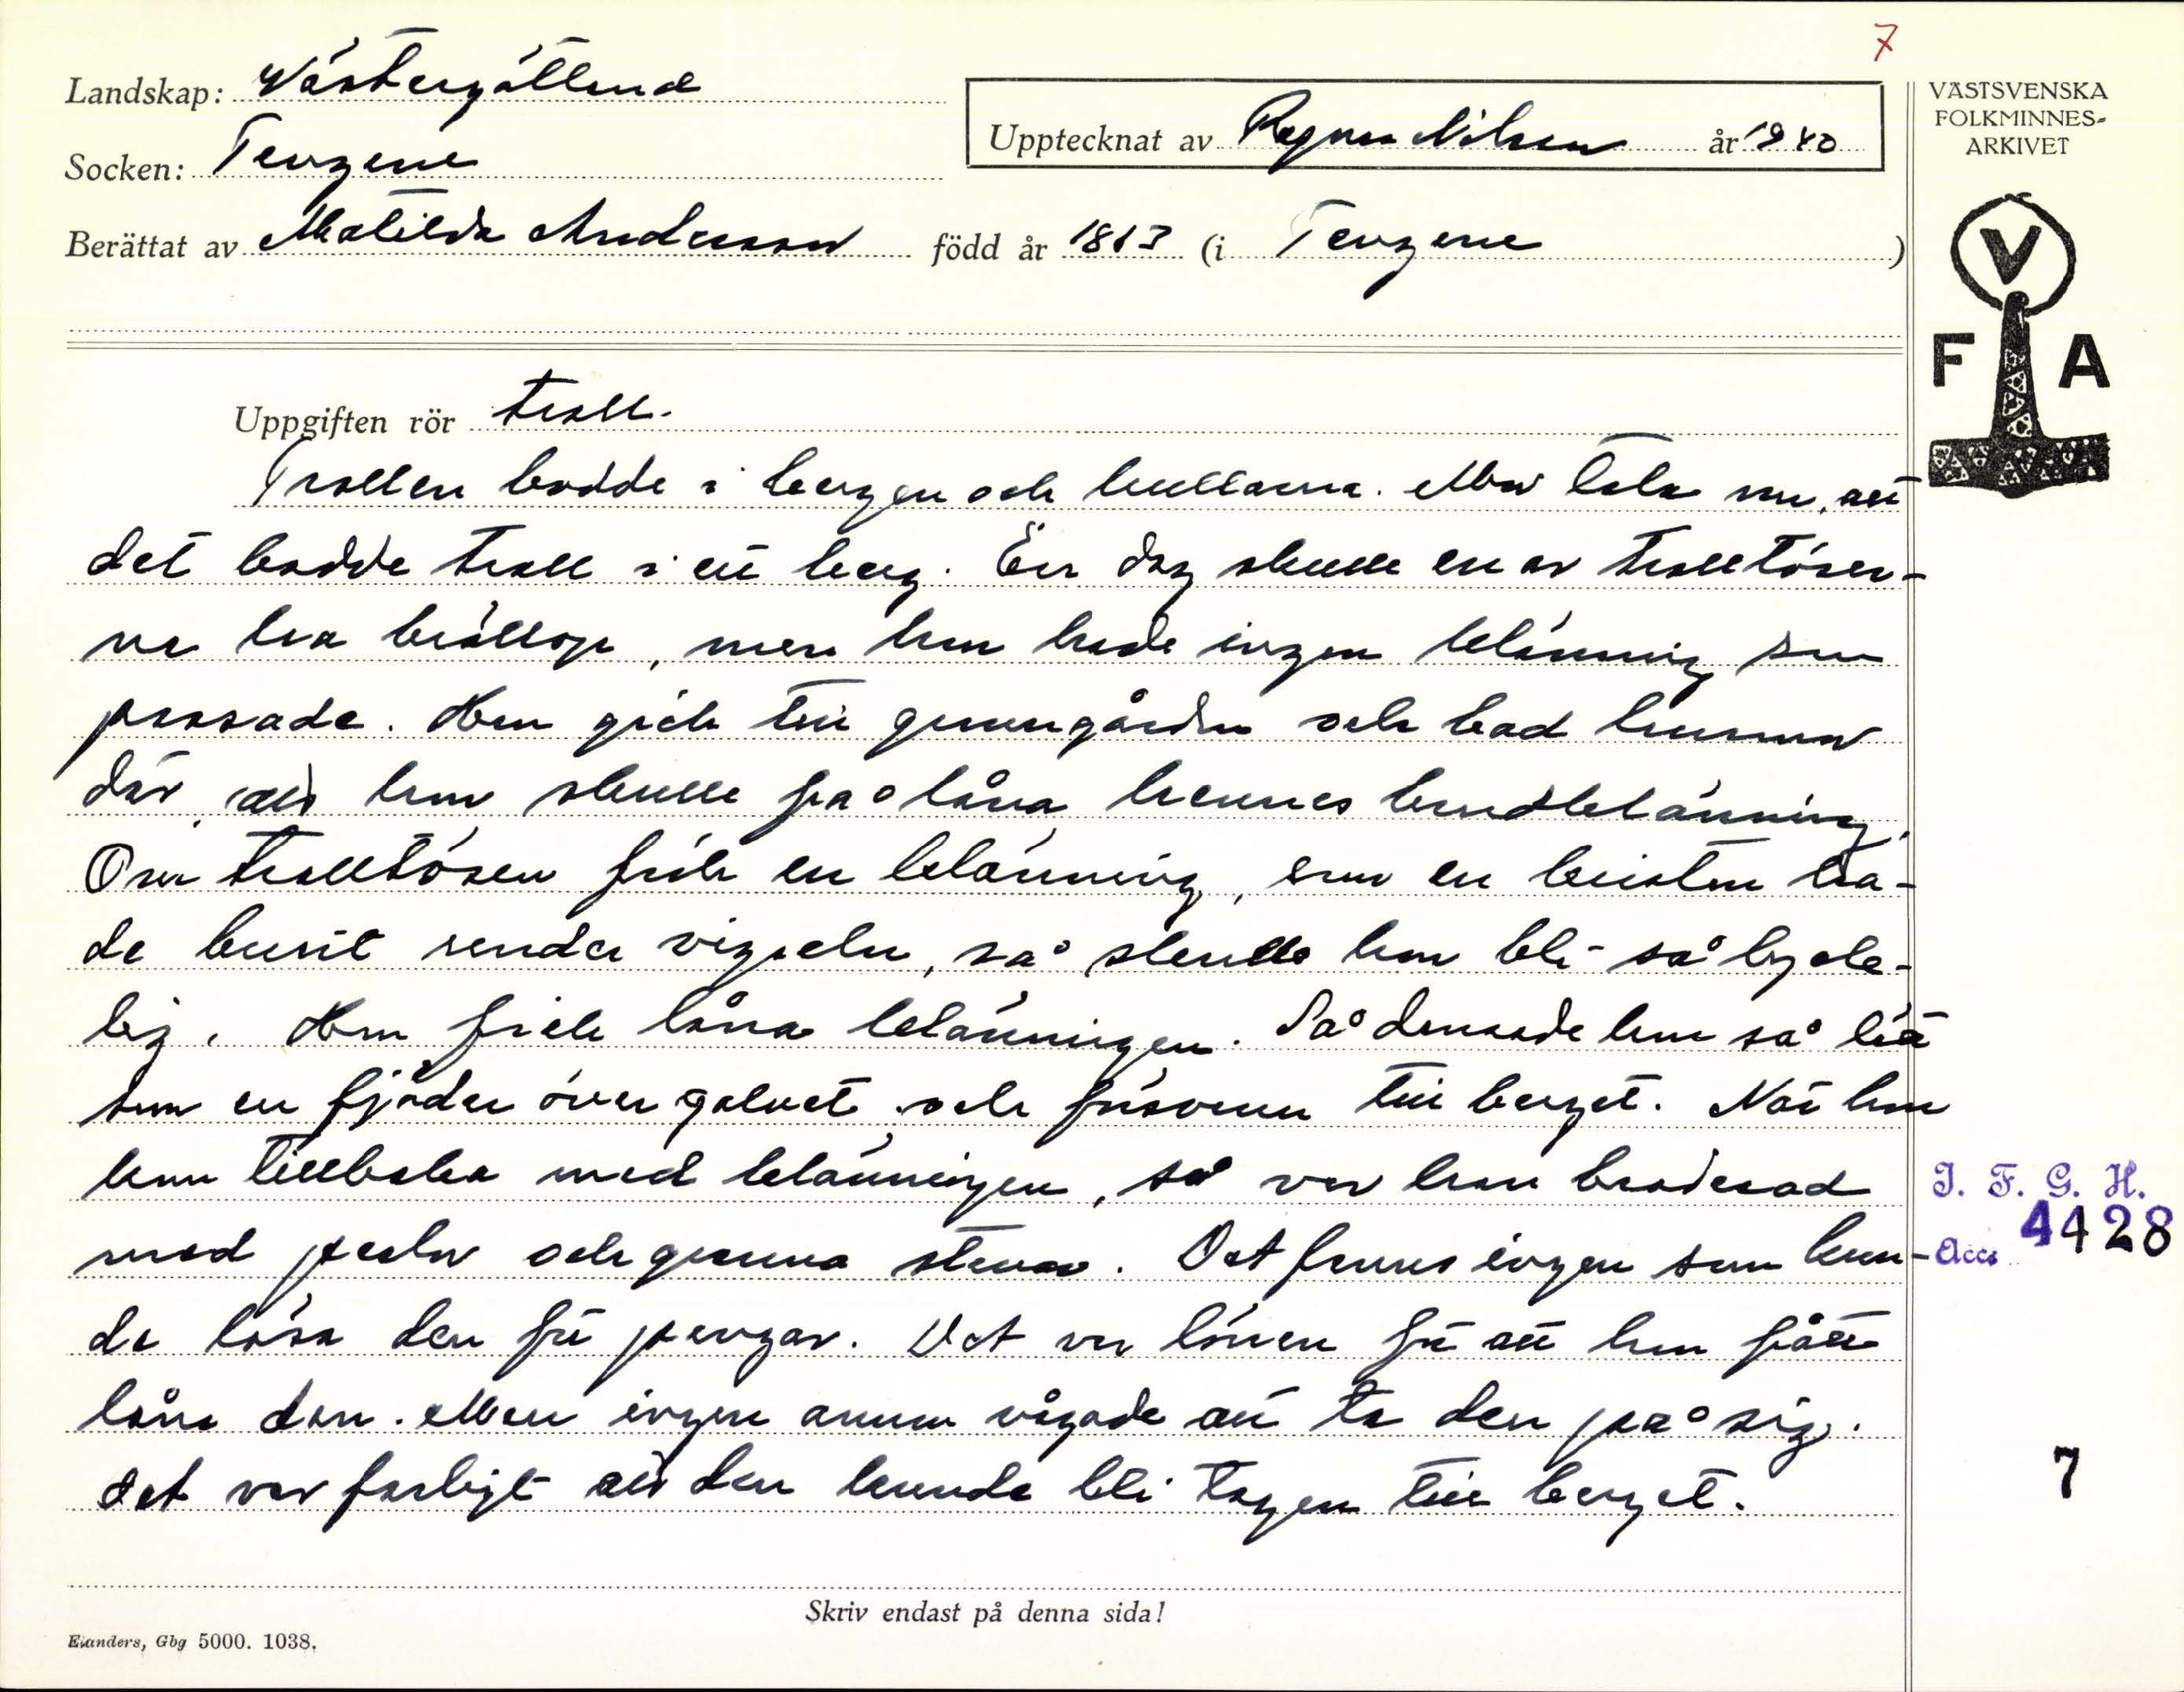 7
Landskap: Västergötland
Upptecknat av Ragnar Nilsson år 1940
VÄSTSVENSKA
FOLKMINNES-
ARKIVET
Socken: Tengene
Berättat av Matilda Andersson född år 1863 (i Tengene)
V
F A
Uppgiften rör troll.
Trollen bodde i bergen och kullarna. Mor tala om, att
det bodde troll i ett berg. En dag skulle en av trolltöser-
na ha bröllop, men hon hade ingen klänning som
passade. Hon gick till granngården och bad kvinnan
där, att hon skulle få låna hennes brudklänning.
Om trolltösen fick en klänning, som en kristen ha-
de burit under vigseln, så skulle hon bli så lyck-
lig. Hon fick låna klänningen. Så dansade hon så lätt
som en fjäder över golvet och försvann till berget. När hon
kom tillbaka med klänningen, så var han broderad
med pärlor och granna stenar. Det fanns ingen som kun-
de lösa den för pengar. Det var lönen för att hon fått
låna den. Men ingen annan vågade att ta den på sig.
det var farligt att den kunde bli tagen till berget.
I. F. G. H.
Acc. 4428
7
Skriv endast på denna sida!
Elanders, Gbg 5000. 1038.